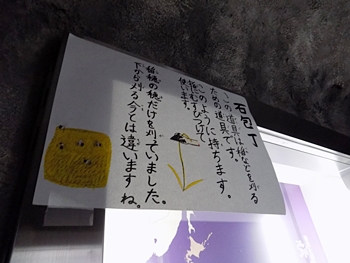 石包丁
この道具は稲などを刈る
ための道具です。
このように持ちます。
指にむすびつけて
使います。
稲穂の穂だけを刈っていました。
下から刈る今とは違いますね。